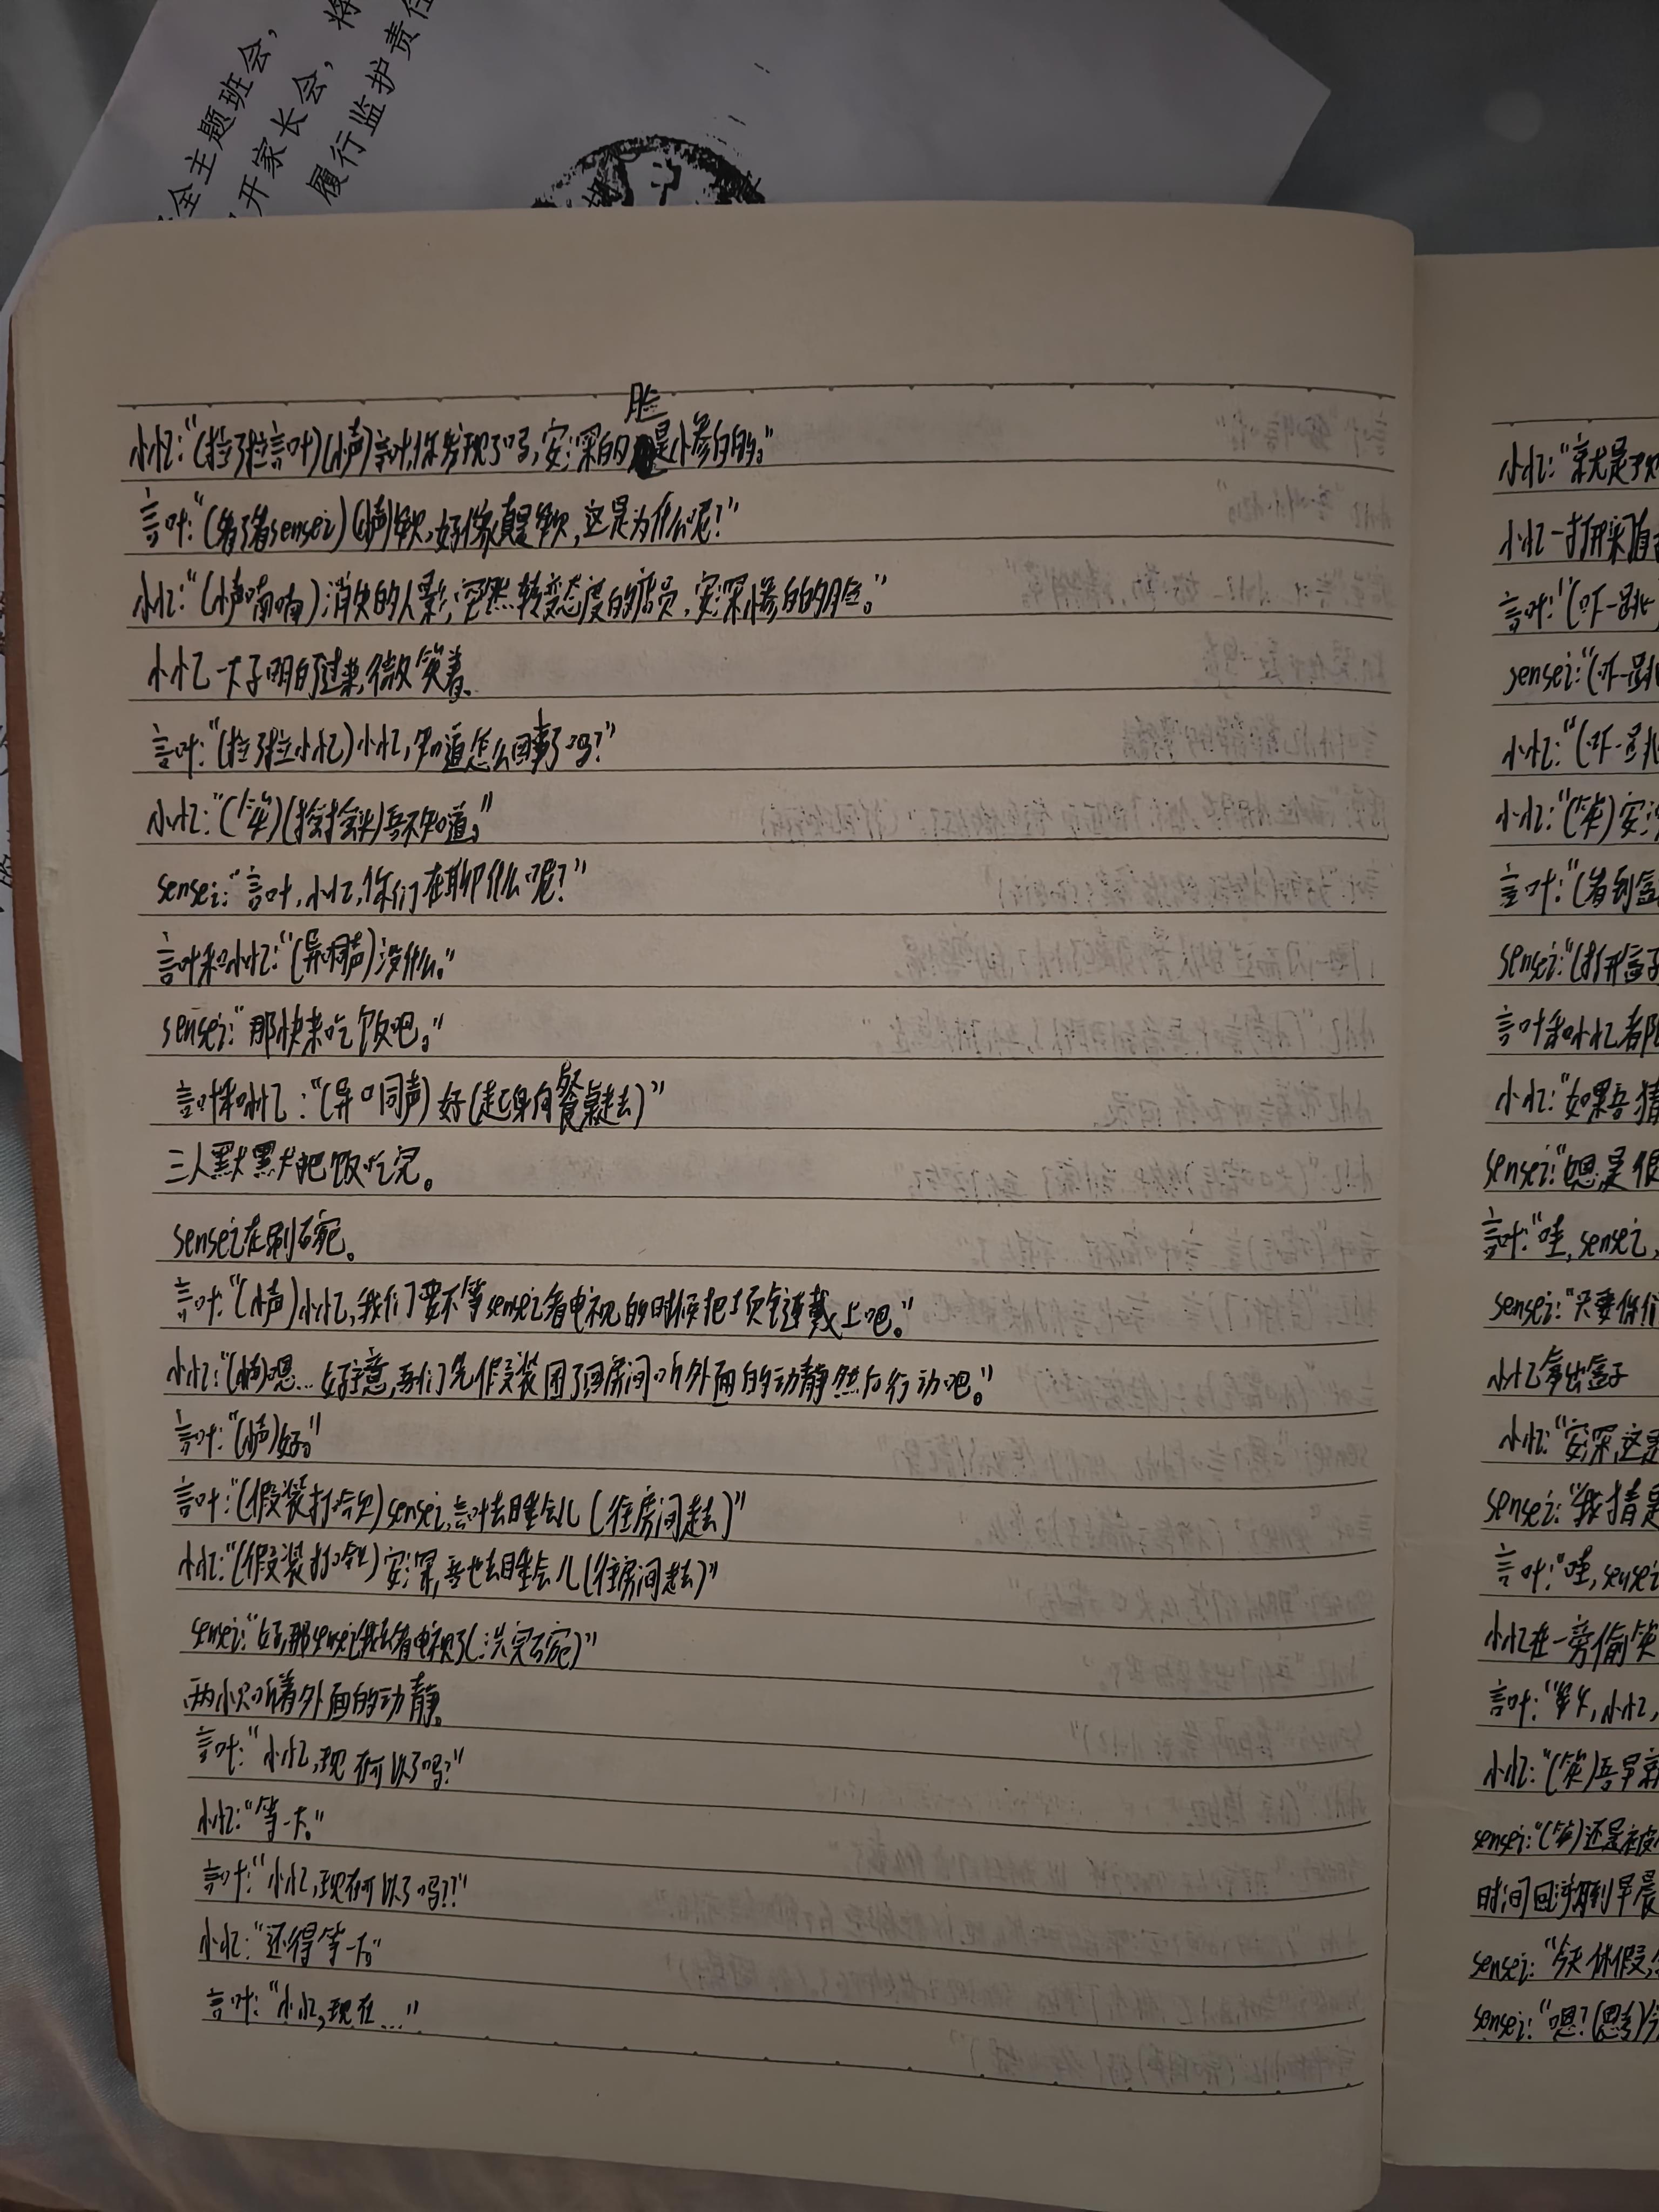 全主题班会，
开家长会，将
履行监护责任
小忆：“(拉了拉言叶)(小声)言叶，你发现了吗，安深的脸是小惨白的。”
言叶：“(看了看sensei)(小声)欸，好像真是欸，这是为什么呢？”
小忆：“(小声喃喃)消失的人影，突然转变态度的店员，安深惨白的脸。”
小忆一下子明白了过来，微微笑着。
言叶：“(拉了拉小忆)小忆，知道怎么回事了吗？”
小忆：“(笑)(摇摇头)吾不知道。”
sensei：“言叶，小忆，你们在聊什么呢？”
言叶和小忆：“(异口同声)没什么。”
sensei：“那快来吃饭吧。”
言叶和小忆：“(异口同声)好(起身向餐桌走去)”
三人默默把饭吃完。
sensei在刷碗。
言叶：“(小声)小忆，我们要不等sensei看电视的时候把项链戴上吧。”
小忆：“(小声)嗯...好主意，吾们先假装困了回房间听外面的动静然后行动吧。”
言叶：“(小声)好。”
言叶：“(假装打哈欠)sensei，言叶去睡会儿(往房间走去)”
小忆：“(假装打哈欠)安深，吾也去睡会儿(往房间走去)”
sensei：“好，那sensei我去看电视了(洗完碗)”
两小只听着外面的动静。
言叶：“小忆，现在可以了吗？”
小忆：“等一下。”
言叶：“小忆，现在可以了吗？！”
小忆：“还得等一下。”
言叶：“小忆，现在...”
小忆：“
小忆一打开
言叶：“(吓一跳
sensei：“(吓一跳
小忆：“(吓一跳
小忆：“(笑)安
言叶：“(看到盒
sensei：“(打开盒子
言叶和小忆都
小忆：“如果吾猜
sensei：“嗯，是很
言叶：“哇，sensei，
sensei：“只要你们
小忆拿出盒子
小忆：“安深，这是
sensei：“我猜是
言叶：“哇，sensei
小忆在一旁偷笑
言叶：“ 小忆，
小忆：“(笑)吾早就
sensei：“(笑)还是被
时间回溯到早晨
sensei：“今天休假，
sensei：“嗯？(思考)今